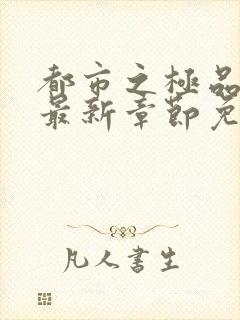 都市之極品
最新章節免
凡人書生